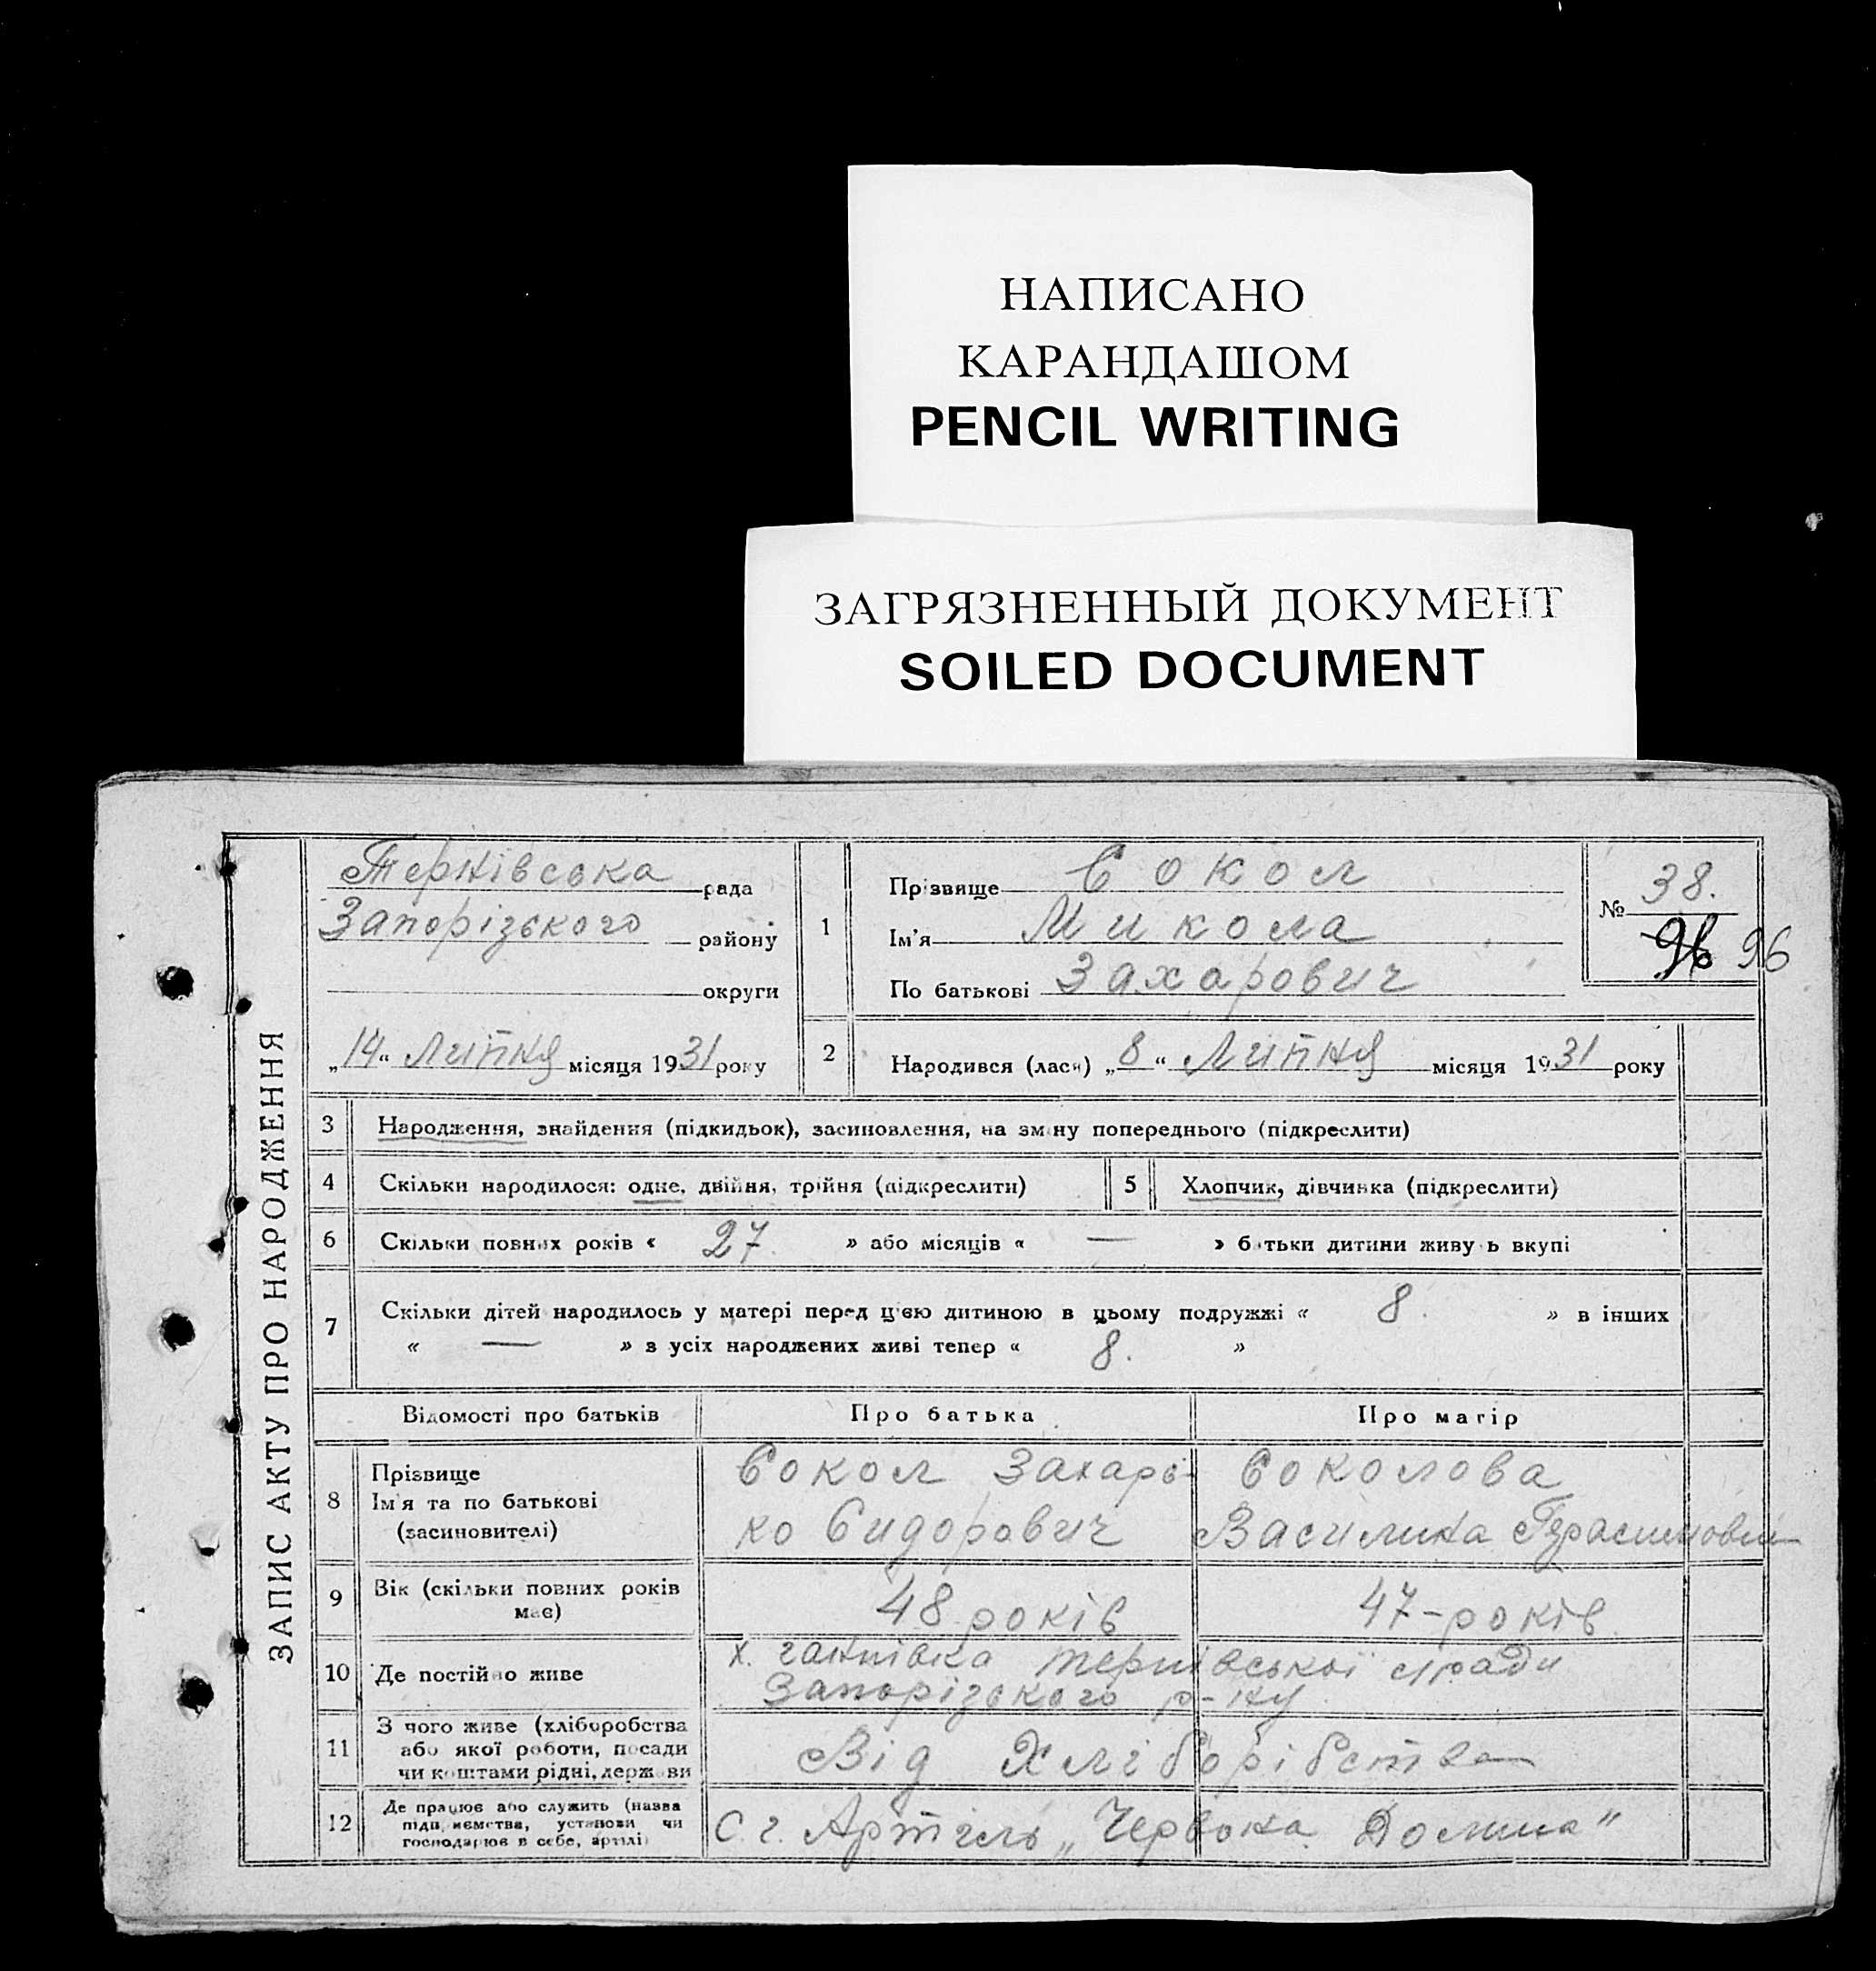 НАПИСАНО
КАРАНДАШОМ
PENCIL WRITING
ЗАГРЯЗНЕННЫЙ ДОКУМЕНТ
SOILED DOCUMENT
ЗАПИС АКТУ ПРО НАРОДЖЕННЯ
Тернівська рада
Запорізького району
округи
„14“ Липня місяця 1931 року
1
Прізвище Сокол
Ім'я Микола
По батькові Захарович
№ 38.
96 96
2
Народився (лася) „8“ Липня місяця 1931 року
3 Народження, знайдення (підкидьок), засиновлення, на зміну попереднього (підкреслити)
4 Скільки народилося: одне, двійня, трійня (підкреслити) 5 Хлопчик, дівчинка (підкреслити)
6 Скільки повних років « 27. » або місяців « — » батьки дитини живуть вкупі
7 Скільки дітей народилось у матері перед цією дитиною в цьому подружжі « 8. » в інших
« — » з усіх народжених живі тепер « 8. »
Відомості про батьків Про батька Про матір
8 Прізвище
Ім'я та по батькові
(засиновителі)
Сокол Захарь-
ко Сидорович
Соколова
Василина Герасимовна
9 Вік (скільки повних років
має)
48 років 47-років
10 Де постійно живе
х. Ганнівка Тернівської с/ради
Запорізького р-ну
11 З чого живе (хліборобства
або якої роботи, посади
чи коштами рідні, держави
Від Хліборібства
12 Де працює або служить (назва
підприємства, установи чи
господарює в себе, артілі)
С. г. Артіль „Червона Долина"